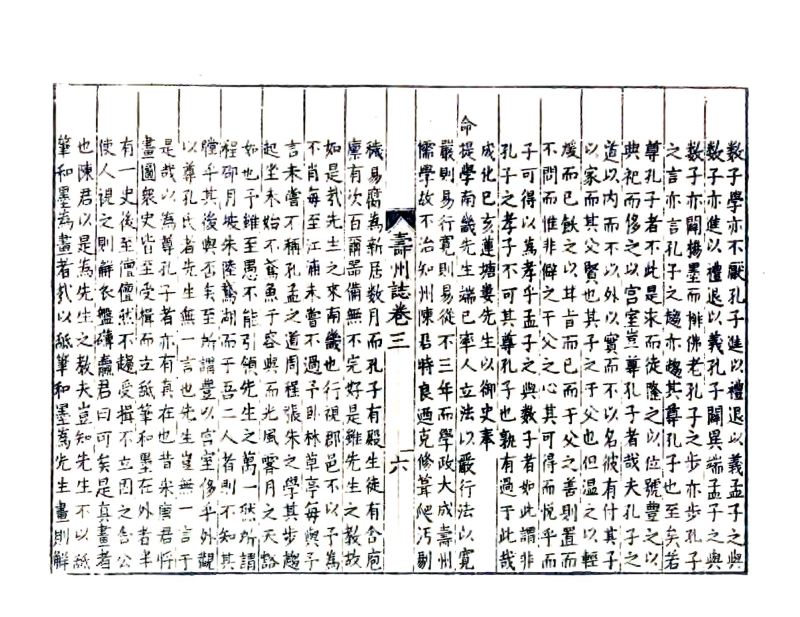 数子學亦不厭孔子進以禮退以義孟子之與
数子亦進以禮退以義孔子闢異端孟子之與
数子亦闢楊墨而排佛老孔子之步亦步孔子
之言亦言孔子之趨亦趨其尊孔子也至矣若
尊孔子者不此是求而徒隆之以位號豊之以
典祀而侈之以宫室豈尊孔子者哉夫孔子之
道以内而不以外以實而不以名彼有什其子
以家而其父賢也其子之于父也但温之以輕
煖而已飲之以甘旨而已而于父之善則置而
不問而惟非僻之干父之心其可得而悦乎而
子可得以為孝乎孟子之與数子者如此謂非
孔子之孝子不可其尊孔子也孰有過于此哉
成化己亥蓮塘婁先生以御史奉
命提學南畿先生端已率人立法以嚴行法以寛
嚴則易行寛則易從不三年而學政大成壽州
儒學故不治知州陳君特良廼克修葺爬汚剔
壽州誌卷三
六
穢易腐為新居数月而孔子有殿生徒有舍庖
廪有次百爾器備無不完好是雖先生之教故
如是哉先生之來南畿也行視郡邑不以予為
不肖每至江浦未嘗不過予卧林草亭每與予
言未嘗不稱孔孟之道周程張朱之學其步趨
起坐未始不鳶魚于容與而光風霽月之天豁
如也予雖至愚不能引領先生之萬一然所謂
程邵月坡朱陸鵞湖而于吾二人者則不知其
瞠乎其後與否矣至所謂豐以宫室侈乎外觀
以尊孔氏者先生無一言也先生豈無一言于
是哉以為尊孔子者亦有真在也昔宋庚君将
畫圖衆史皆至受揖而立舐筆和墨在外者半
有一史後至儃儃然不趨受揖不立因之舍公
使人視之則解衣盤礴臝君曰可矣是真畫者
也陳君以是為先生之教夫豈知先生不以舐
筆和墨為畫者哉以舐筆和墨為先生畫則解